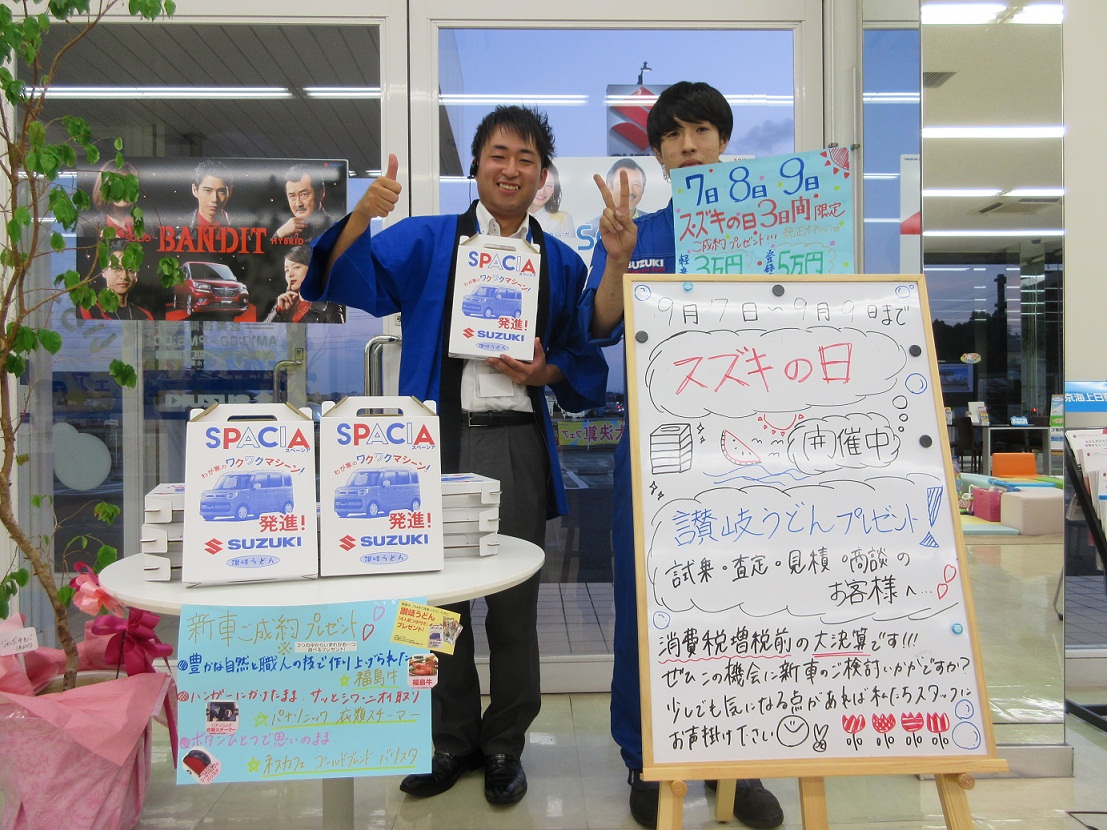 SOLIO BANDIT HYBRID
7日8日9日
スズキの日3日間限定
ご成約プレゼント!!!
3万円
5万円
SUZUKI
SPACIA
スペーシア
わが家のワクワクマシーン!
発進!
SUZUKI
讃岐うどん
SPACIA
スペーシア
わが家のワクワクマシーン!
発進!
SUZUKI
讃岐うどん
SPACIA
スペーシア
わが家のワクワクマシーン!
発進!
SUZUKI
讃岐うどん
9月7日〜9月9日まで
スズキの日
開催中
讃岐うどんプレゼント!
試乗・査定・見積・商談の
お客様へ...
消費税増税前の大決算です!!!
ぜひこの機会に新車のご検討いかがですか?
少しでも気になる点があれば私たちスタッフに
お声掛けください
新車ご成約プレゼント
豊かな自然と職人の技で作り上げられた
☆福島牛
福島牛
讃岐うどん
プレゼント!
ハンガーにかけたまま、サッとシワ・ニオイ取り
☆パナソニック 衣類スチーマー
ボタンひとつで思いのまま
☆ネスカフェ ゴールドブレンド バリスタ